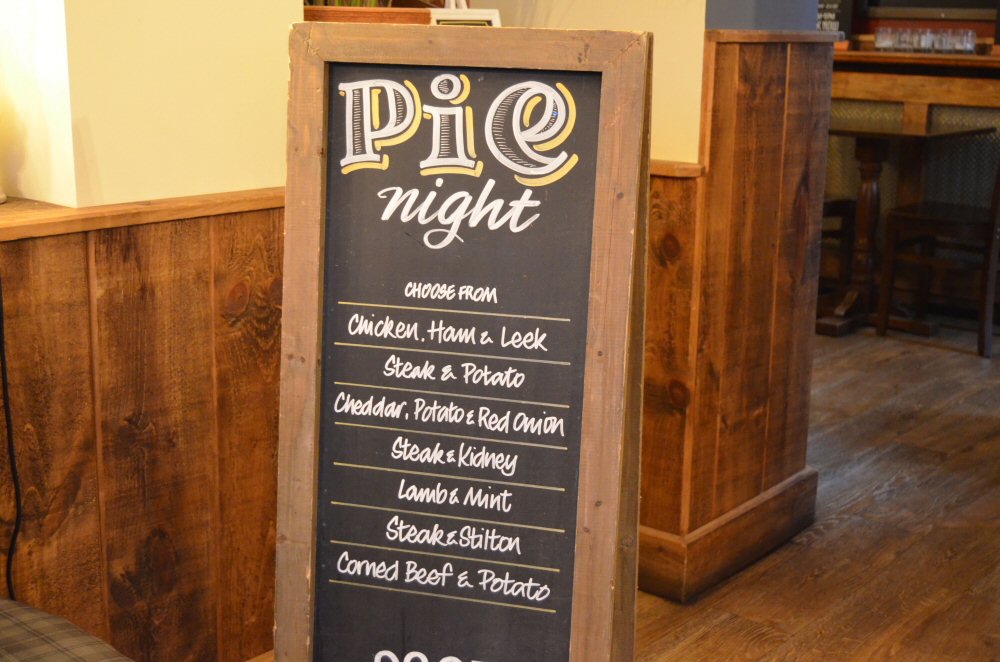 Pie
night
CHOOSE FROM
Chicken, Ham & Leek
Steak & Potato
Cheddar, Potato & Red Onion
Steak & Kidney
Lamb & Mint
Steak & Stilton
Corned Beef & Potato